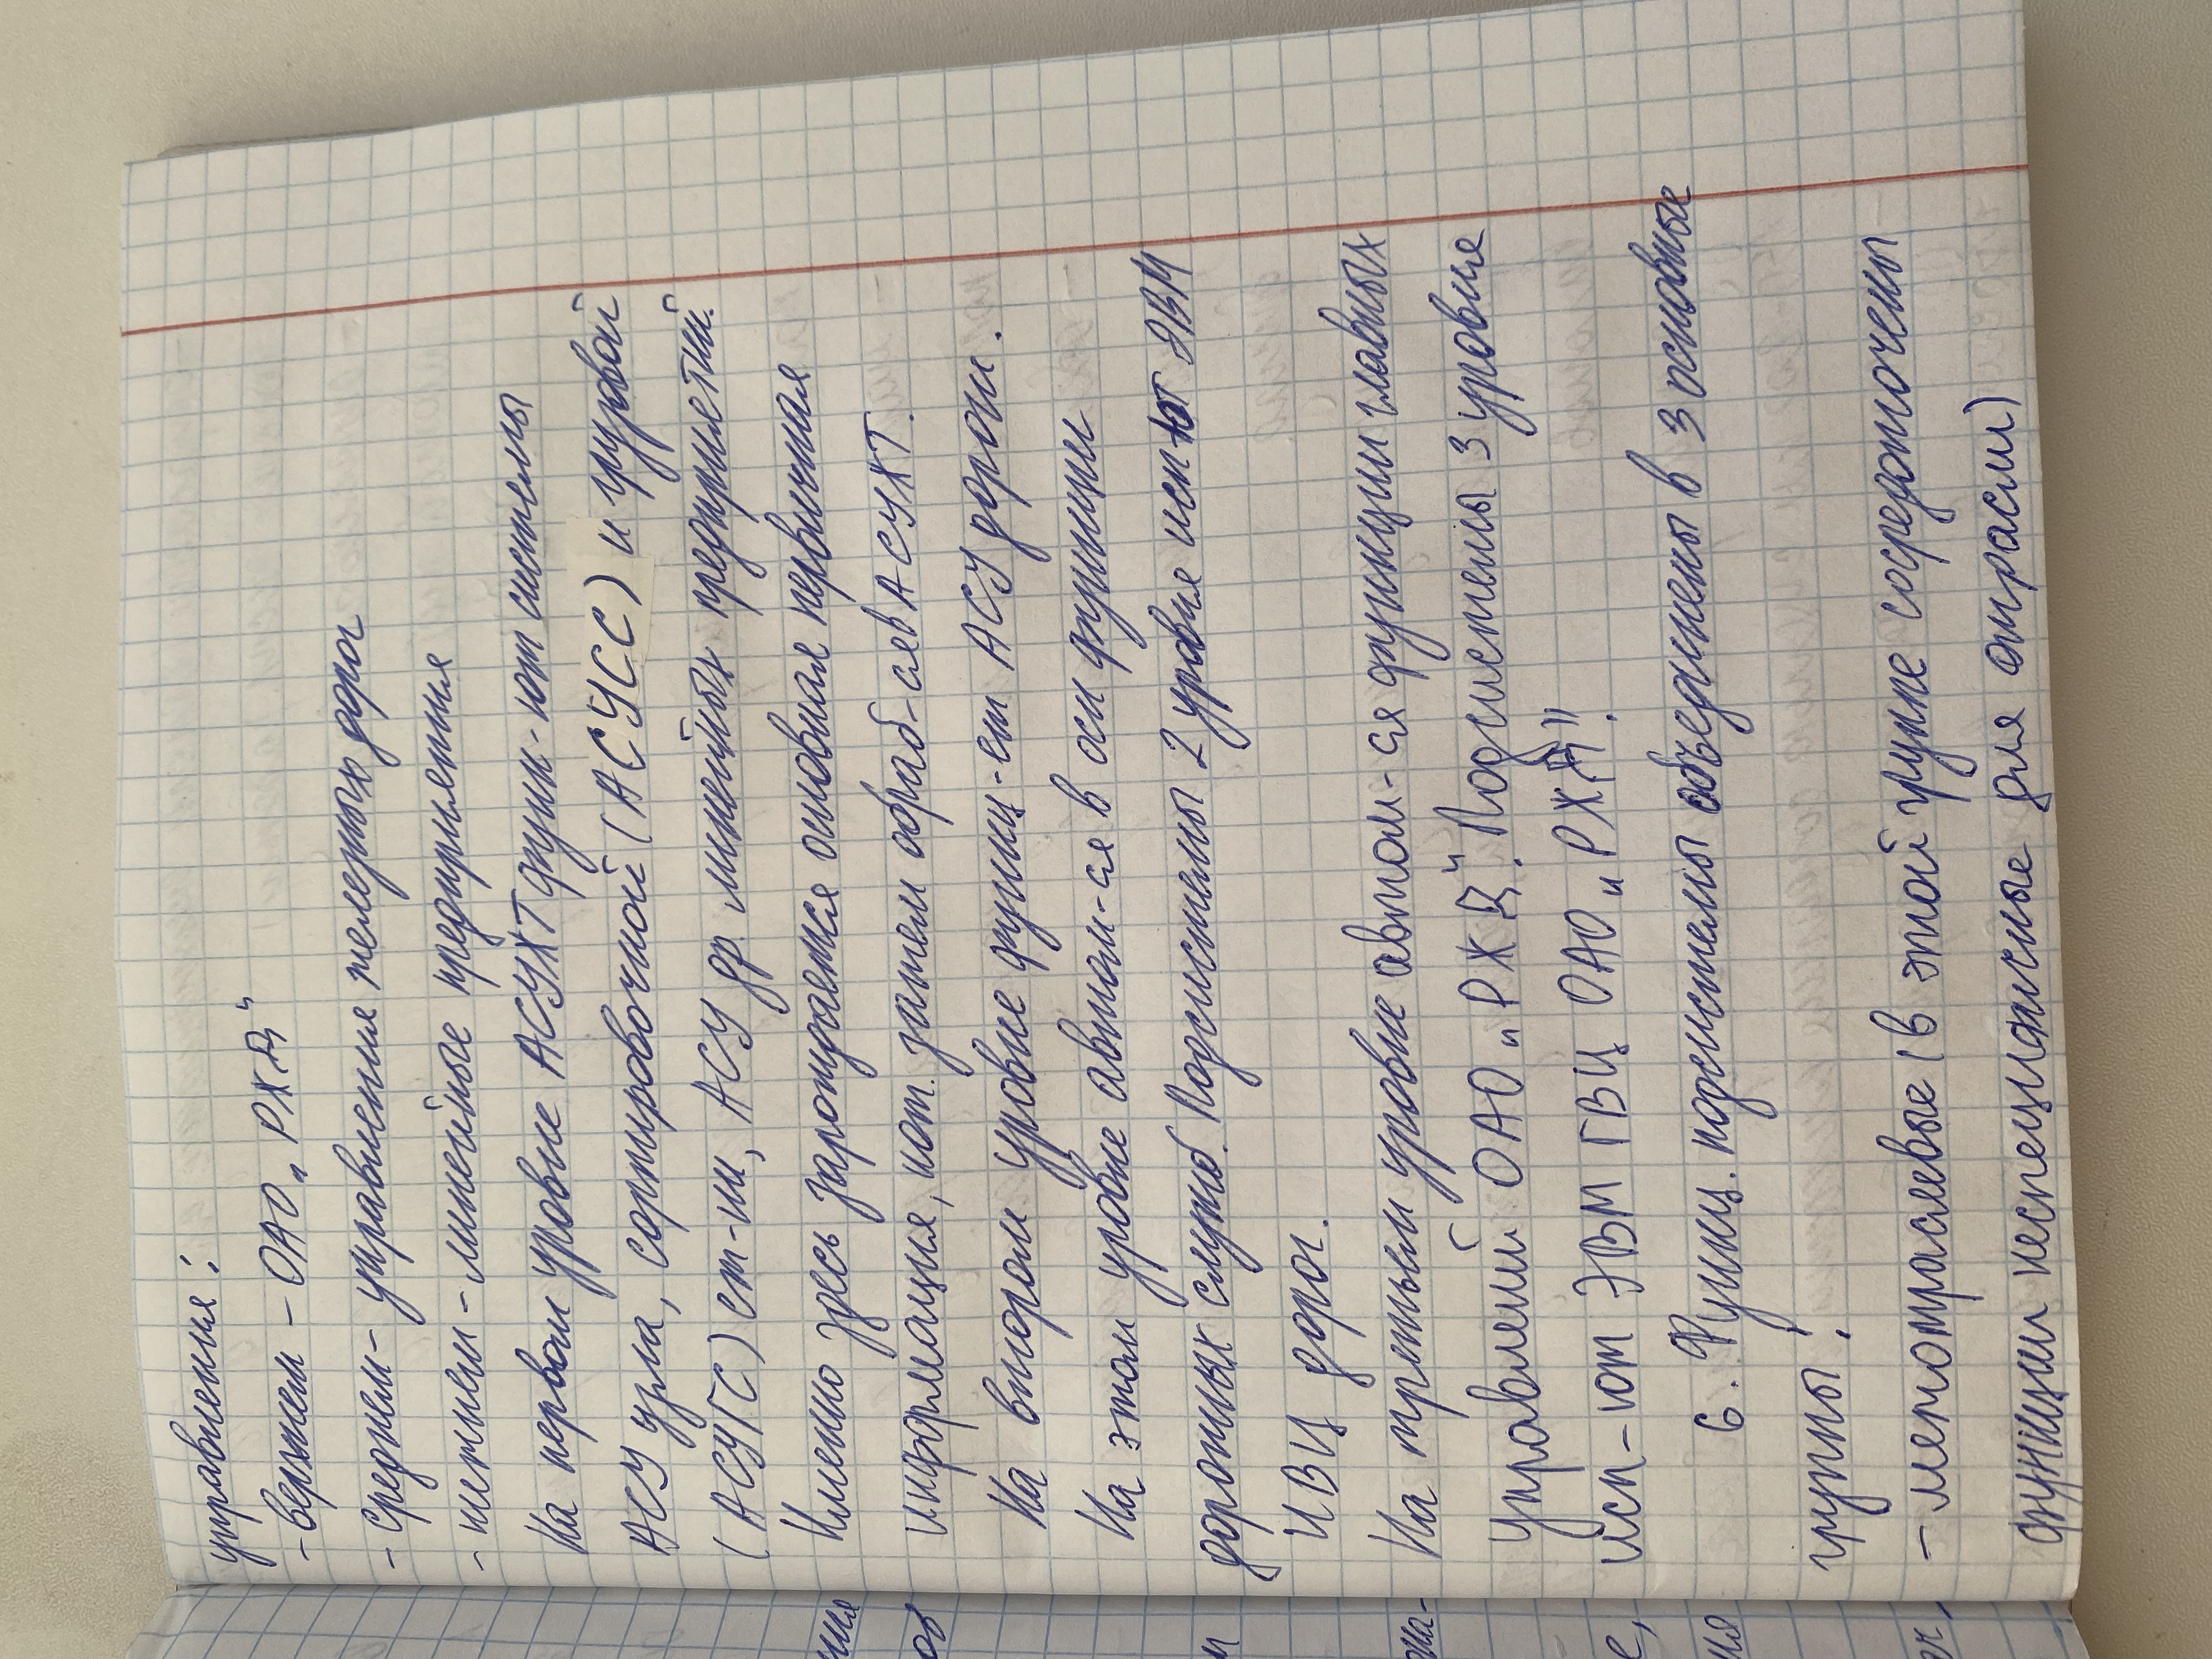 управления:
- верхнем - ОАО „РЖД"
- среднем - управления железных дорог
- нижнем - линейные предприятия
На первом уровне АСУЖТ функ-ют системы
АСУ узла, сортировочной (АСУСС) и грузовой
(АСУГС) ст-ии, АСУ др. линейных предприятий.
Именно здесь зарождается основная первичная
информация, кот. затем обраб-ся в АСУЖТ.
На втором уровне функц-ет АСУ дороги.
На этом уровне автом-ся в осн функции
дорожных служб. Подсистемы 2 уровня исп-ют ЭВМ
ИВЦ дорог.
На третьем уровне автом-ся функции главных
управлений ОАО „РЖД". Подсистемы 3 уровня
исп-ют ЭВМ ГВЦ ОАО „РЖД".
6. Функц. подсистемы объединены в 3 основные
группы:
- межотраслевые (в этой групе сосредоточены
функции неспецифичные для отрасли)
ния
ов